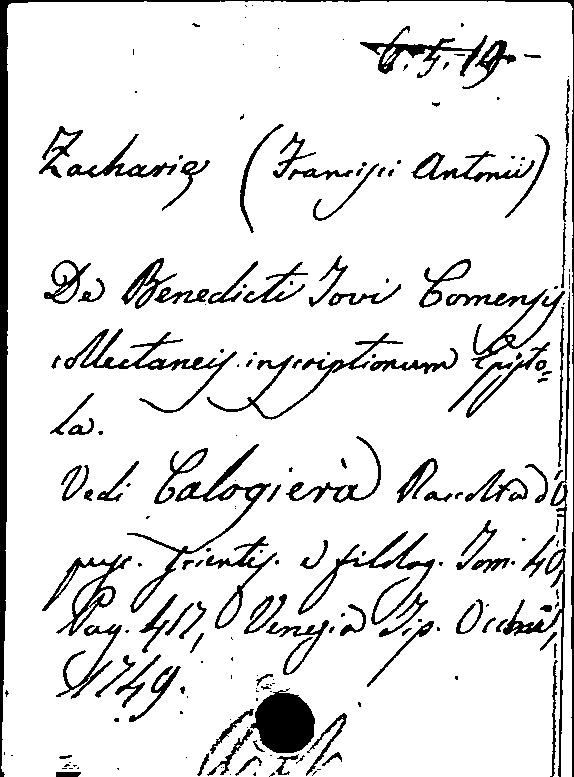 6.5.19.-
Zacharię (Francisci Antonii)
De Benedicti Jovi Comensis
collectaneis inscriptionum Episto=
la.
Vedi Calogierà Raccolta d'O
pusc. scientif. e filolog. Tom. 40,
Pag. 417, Venezia Tip. Occhi,
1749.